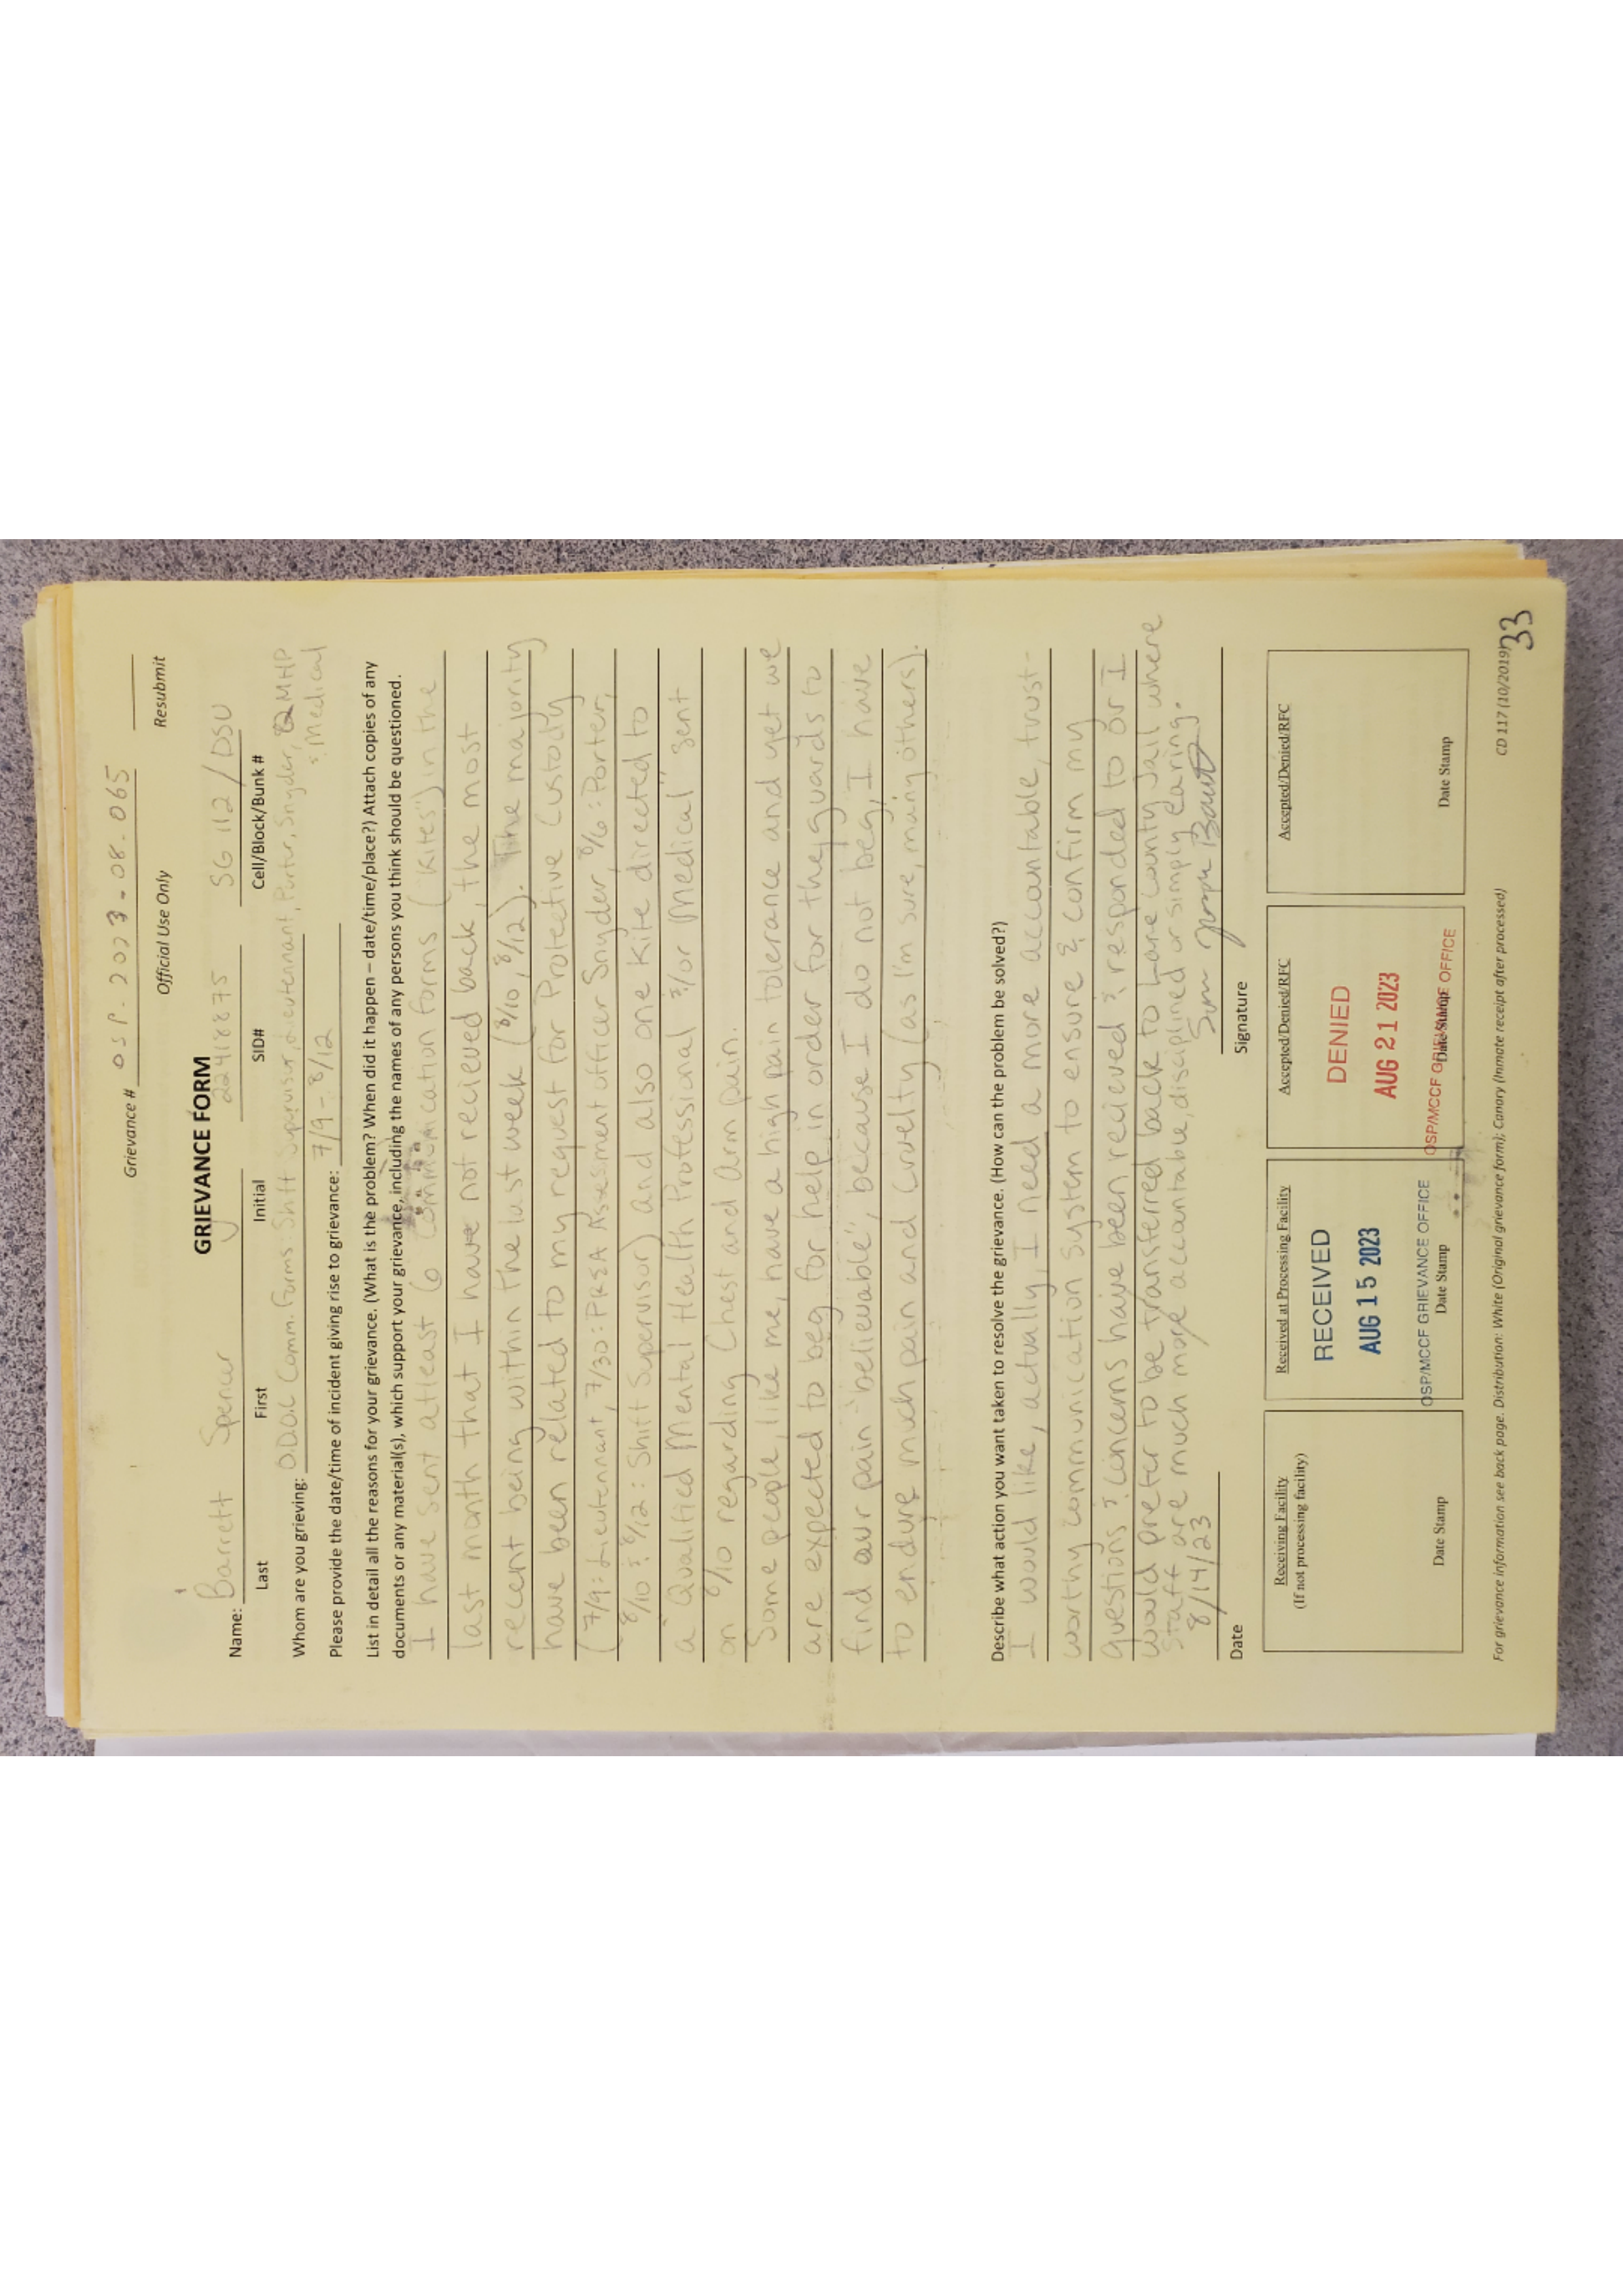 Grievance # OSP.2023.08.065
Official Use Only Resubmit
GRIEVANCE FORM
Name: Barrett Spencer J 22418875 SG 112/DSU
Last First Initial SID# Cell/Block/Bunk #
Whom are you grieving: ODOC Comm. Forms: Shift Supervisor, Lieutennant, Porter, Snyder, QMHP
& Medical
Please provide the date/time of incident giving rise to grievance: 7/9 - 8/12
List in detail all the reasons for your grievance. (What is the problem? When did it happen – date/time/place?) Attach copies of any
documents or any material(s), which support your grievance, including the names of any persons you think should be questioned.
I have sent atleast 6 Communication forms ("Kites") in the
last month that I have not recieved back, the most
recent being within the last week (8/10, 8/12). The majority
have been related to my request for Protective Custody
(7/9: Lieutennant, 7/30: PREA Assessment officer Snyder, 8/6: Porter,
8/10 & 8/12: Shift Supervisor) and also one Kite directed to
a "Qualified Mental Health Professional &/or Medical" sent
on 8/10 regarding Chest and arm pain.
Some people, like me, have a high pain tolerance and yet we
are expected to beg for help in order for the guards to
find our pain "believable"; because I do not beg, I have
to endure much pain and cruelty (as I'm sure, many others).
Describe what action you want taken to resolve the grievance. (How can the problem be solved?)
I would like, actually, I need a more accountable, trust-
worthy communication system to ensure & confirm my
questions & concerns have been recieved & responded to or I
would prefer to be transferred back to Lane County Jail where
Staff are much more accountable, disciplined or simply caring.
8/14/23
Date Signature
Receiving Facility
(If not processing facility)
Date Stamp
Received at Processing Facility
RECEIVED
AUG 15 2023
OSP/MCCF GRIEVANCE OFFICE
Date Stamp
Accepted/Denied/RFC
DENIED
AUG 21 2023
OSP/MCCF GRIEVANCE OFFICE
Date Stamp
Accepted/Denied/RFC
Date Stamp
For grievance information see back page. Distribution: White (Original grievance form); Canary (Inmate receipt after processed) CD 117 (10/2019)
33